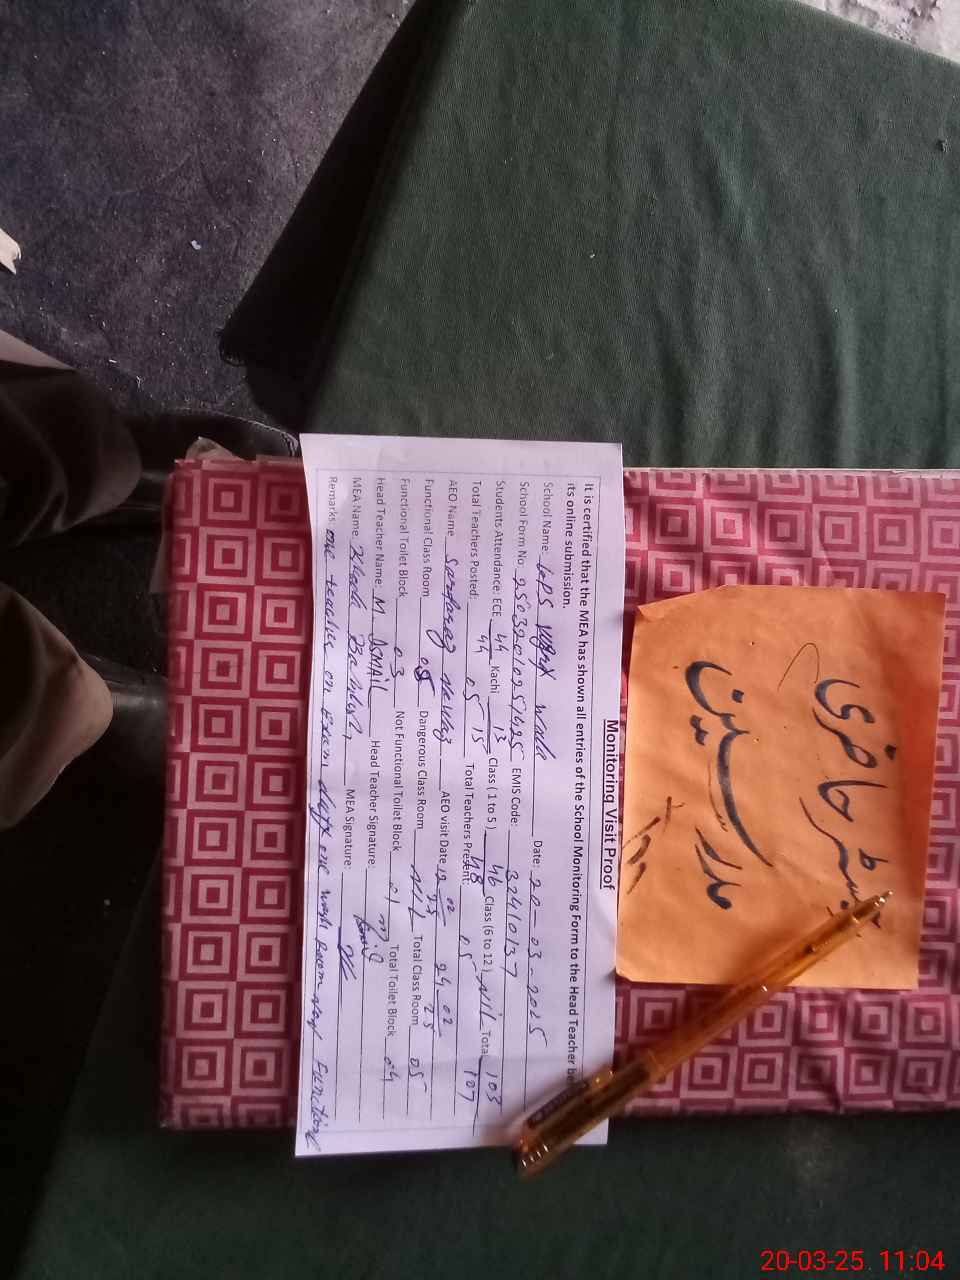 Monitoring Visit Proof
It is certified that the MEA has shown all entries of the School Monitoring Form to the Head Teacher be
its online submission.
School Name: Wala Date: 20-03-2025
School Form No. EMIS Code: 32410137
Students Attendance: ECE 44 Kachi 13 Class (1 to 5) 46 Class (6 to 12) Nil Total 103
44 15 48 107
Total Teachers Posted: 05 Total Teachers Present: 05
AEO Name AEO visit Date 24-02
Functional Class Room 05 Dangerous Class Room Nil Total Class Room 05
Functional Toilet Block 03 Not Functional Toilet Block 01 Total Toilet Block 04
Head Teacher Name: M. ISMAIL Head Teacher Signature:
MEA Name: MEA Signature:
Remarks: one teacher on Exam duty one wash Room
رجسٹر حاضری
مدرسین
20-03-25 11:04